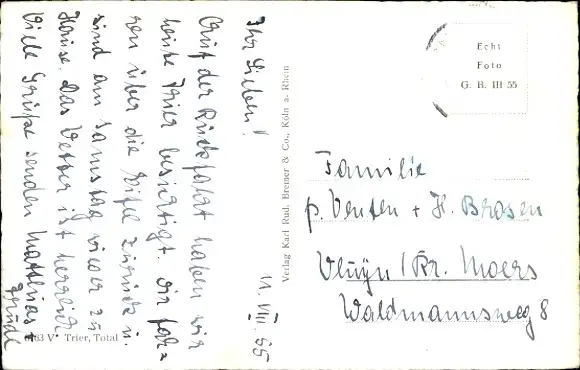 11. VIII. 55
Ihr Lieben!
Auf der Rückfahrt haben wir
heute Trier besichtigt. Wir fah=
ren über die Eifel zurück u.
sind am Samstag wieder zu
Hause. Das Wetter ist herrlich.
Viele Grüße senden Matthias +
Trude
V Trier, Total
Verlag Karl Rud. Bremer & Co., Köln a. Rhein
Echt
Foto
G. B. III 55
Familie
p. Venten + H. Brosen
Vluyn / Kr. Moers
Waldmannsweg 8